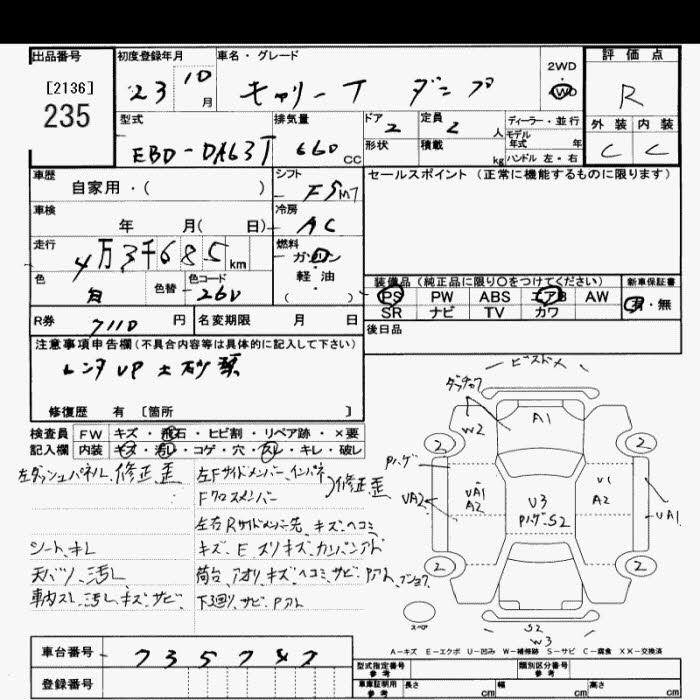 出品番号 初度登録年月 車名・グレード 2WD 評価点
[2136] 23 10月 キャリーT ダンプ 4WD R
235
型式 排気量 ドア 定員 ディーラー・並行 外装 内装
EBD-DA63T 660 cc 2 2 人 モデル年式 年 C C
形状 積載 kg ハンドル 左・右
車歴 シフト セールスポイント (正常に機能するものに限ります)
自家用・( ) F5MT
車検 冷房
年 月( 日) AC
走行 燃料
4万3千685km ガソリン・軽油
色 色替 色コード ( ) 装備品 (純正品に限り○をつけてください) 新車保証書
白 26U PS PW ABS エアB AW 有・無
R券 7110 円 名変期限 月 日 SR ナビ TV カワ
後日品
注意事項申告欄(不具合内容等は具体的に記入して下さい)
レンタUP 土砂禁
修復歴 有 [箇所 ]
検査員 FW キズ・飛石・ヒビ割・リペア跡・×要
記入欄 内装 キズ・汚レ・コゲ・穴・スレ・キレ・破レ
左ダッシュパネル、修正歪 左Fサイドメンバー、インパネ
Fクロスメンバー )修正歪
左右Rサイドメンバー先、キズ、ヘコミ
シート、キレ キズ、E、スリキズ、カンバンアト
天バリ、汚レ 荷台、アオリ、キズ、ヘコミ、サビ、Pアト
車内スレ、汚レ、キズ、サビ、 下回り、サビ、Pアト
ビスドメ
W2 A1 2 2
Pハゲ
UA2 UA1 A2 U3 Pハゲ・S2 U1 A2 UA1
2 2
スペア S2
W3
A-キズ E-エクボ U-凹み W-補修跡 S-サビ C-腐食 XX-交換済
車台番号 735747
登録番号
型式指定番号 参考 類別区分番号 参考
車庫証明用 参考 長さ cm 幅 cm 高さ cm